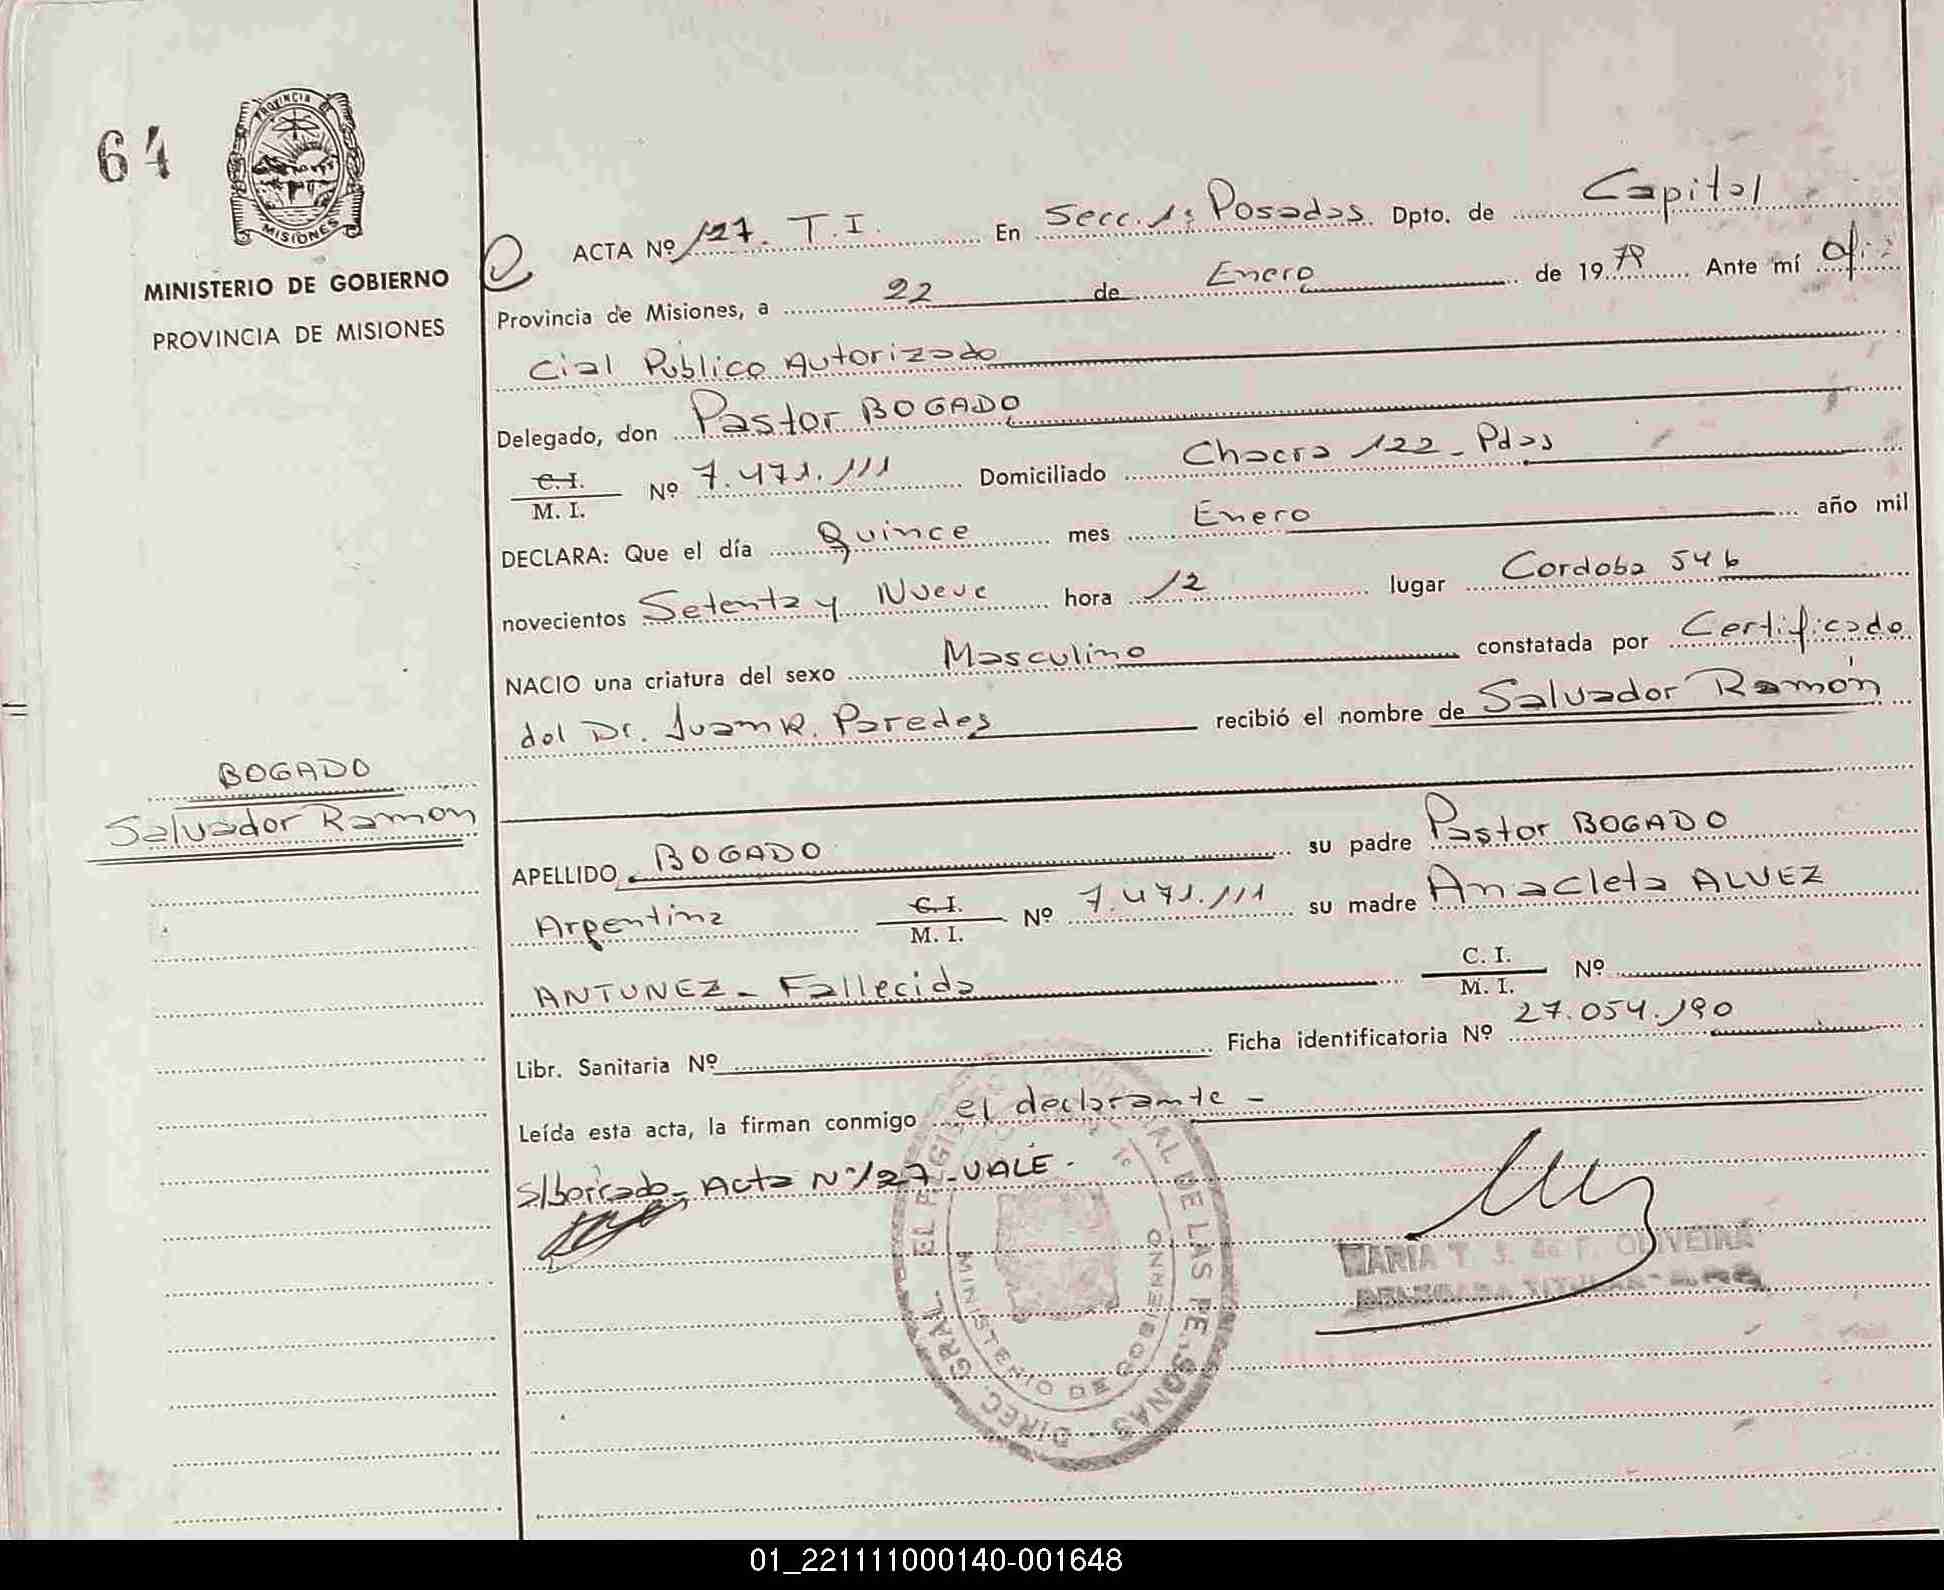 64
PROVINCIA DE
MISIONES
MINISTERIO DE GOBIERNO
PROVINCIA DE MISIONES
BOGADO
Salvador Ramón
ACTA Nº 127. T.I. En Secc. 1ª Posadas. Dpto. de Capital
Provincia de Misiones, a 22 de Enero de 1979 Ante mí Ofi-
cial Público Autorizado
Delegado, don Pastor BOGADO
C.I.
M. I. Nº 7.471.111 Domiciliado Chacra 122 - Pdas
DECLARA: Que el día Quince mes Enero año mil
novecientos Setenta y Nueve hora 12 lugar Cordoba 546
NACIO una criatura del sexo Masculino constatada por Certificado
del Dr. Juan R. Paredes recibió el nombre de Salvador Ramón
APELLIDO BOGADO su padre Pastor BOGADO
Argentina C.I. M. I. Nº 7.471.111 su madre Anacleta ALVEZ
ANTUNEZ - Fallecida C. I. M. I. Nº
Libr. Sanitaria Nº Ficha identificatoria Nº 27.054.190
Leída esta acta, la firman conmigo el declarante -
S/borrado - Acta Nº 127 - VALE -
DIREC. GRAL. DE LAS PERSONAS
MINISTERIO DE GOBIERNO
MARIA T. J. de F. OLIVEIRA
DELEGADA TITULAR
01_221111000140-001648